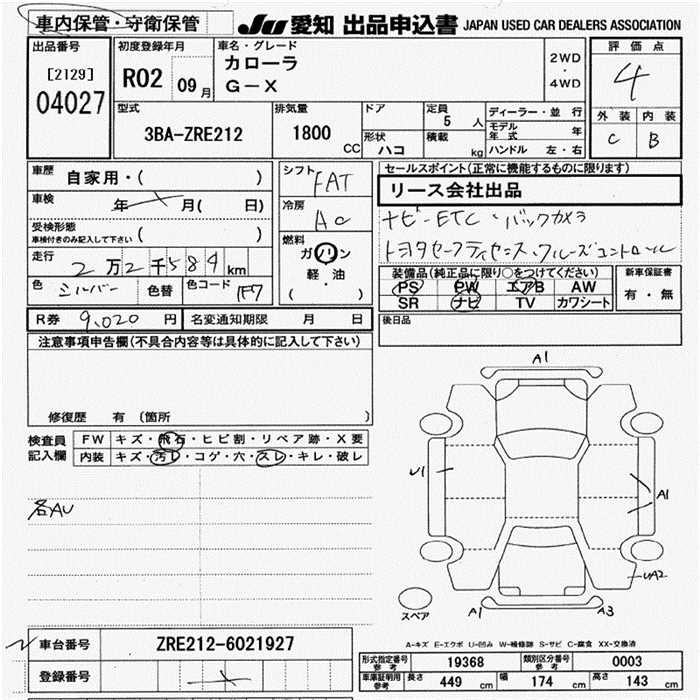 車内保管・守衛保管 JU 愛知 出品申込書 JAPAN USED CAR DEALERS ASSOCIATION
出品番号 [2129] 04027
初度登録年月 R02 09月
車名・グレード カローラ G-X
2WD・4WD
評価点 4
外装 C 内装 B
型式 3BA-ZRE212
排気量 1800 CC
ドア
形状 ハコ
定員 5 人
積載 kg
ディーラー・並行
モデル年式 年
ハンドル 左・右
車歴 自家用・( )
車検 年 月( 日)
受検形態 車検付きのみ記入して下さい ( )
走行 2万2千584km
色 シルバー 色替 色コード 1F7
シフト FAT
冷房 AC
燃料 ガソリン 軽・油 ( ・ )
セールスポイント(正常に機能するものに限ります)
リース会社出品
ナビ-ETC・バックカメラ
トヨタセーフティセンス・クルーズコントロール
装備品(純正品に限り○をつけてください)
PS PW エアB AW
SR ナビ TV カワシート
新車保証書 有・無
R券 9,020円 名変通知期限 月 日
後日品
注意事項申告欄(不具合内容等は具体的に記入して下さい)
修復歴 有(箇所 )
検査員記入欄
FW キズ・飛石・ヒビ割・リペア跡・X要
内装 キズ・汚レ・コゲ・穴・スレ・キレ・破レ
各AU
A1
U1
A1
UA2
A1
A3
スペア
A-キズ E-エクボ U-凹み W-補修跡 S-サビ C-腐食 XX-交換済
車台番号 ZRE212-6021927
登録番号
形式指定番号 参考 19368 類別区分番号 参考 0003
車庫証明用 参考 長さ 449 cm 幅 174 cm 高さ 143 cm